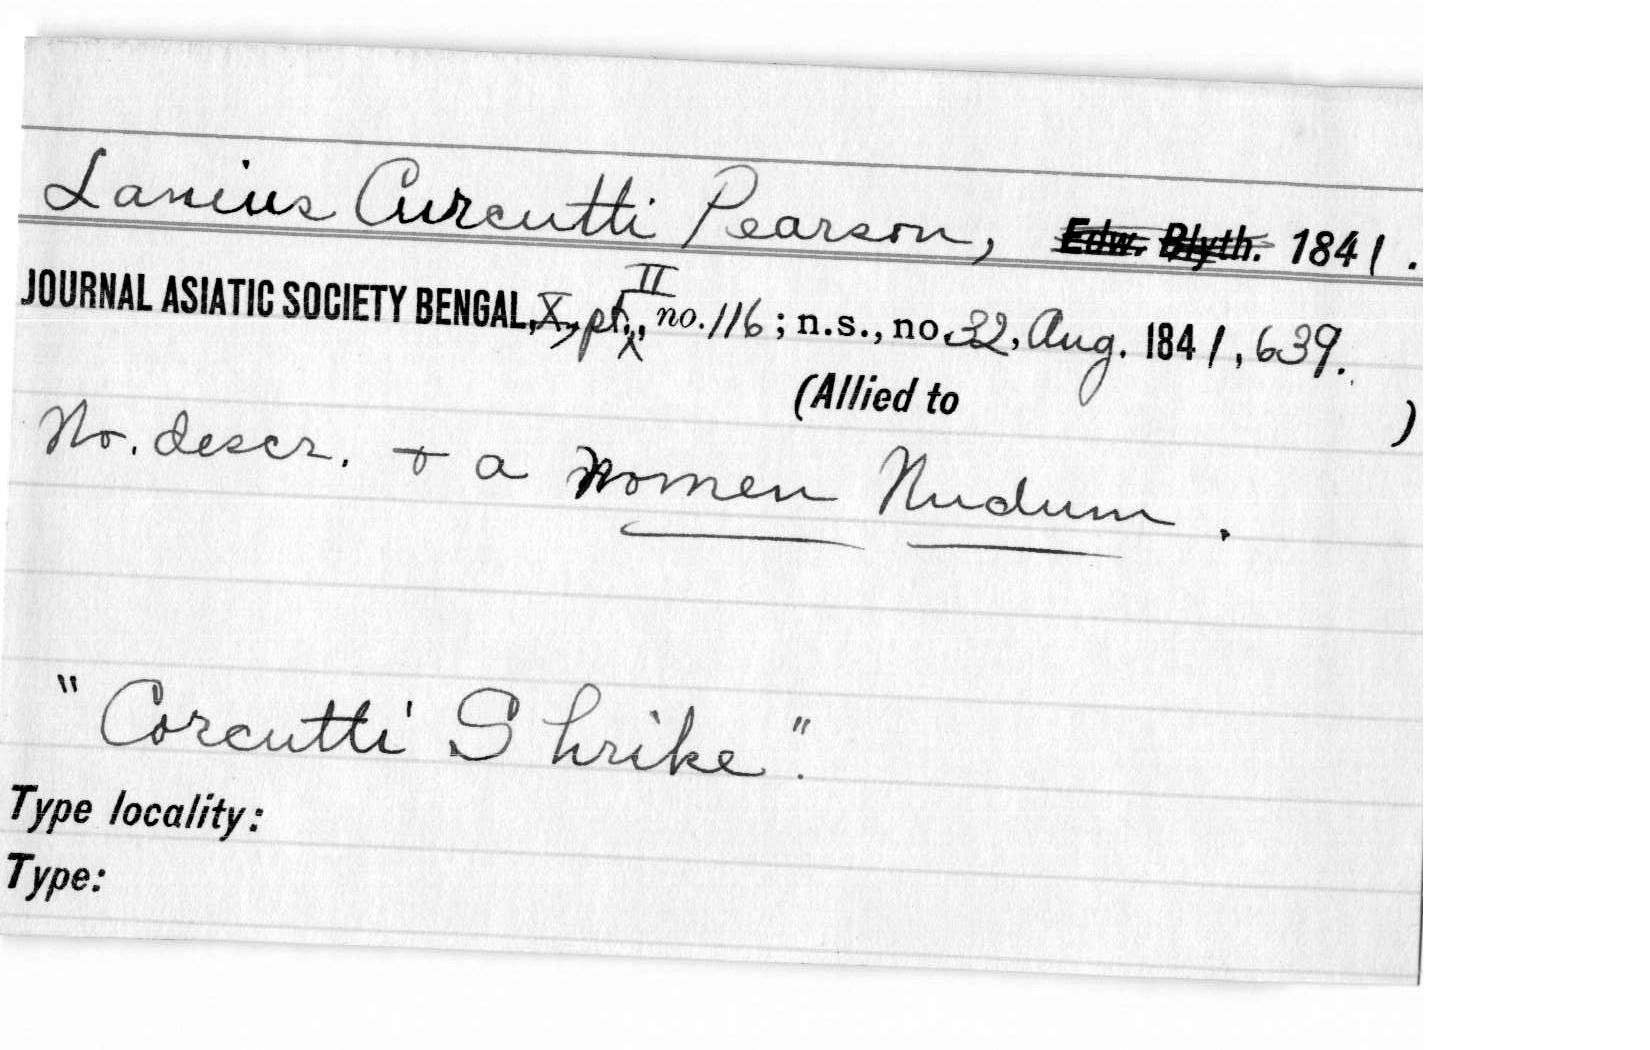 Lanius Curcutti Pearson, Edw. Blyth. 1841.
JOURNAL ASIATIC SOCIETY BENGAL, X, pt. II, no. 116; n.s., no. 32, Aug. 1841, 639.
(Allied to )
No. descr. + a Nomen Nudum.
"Corcutti' Shrike".
Type locality:
Type: